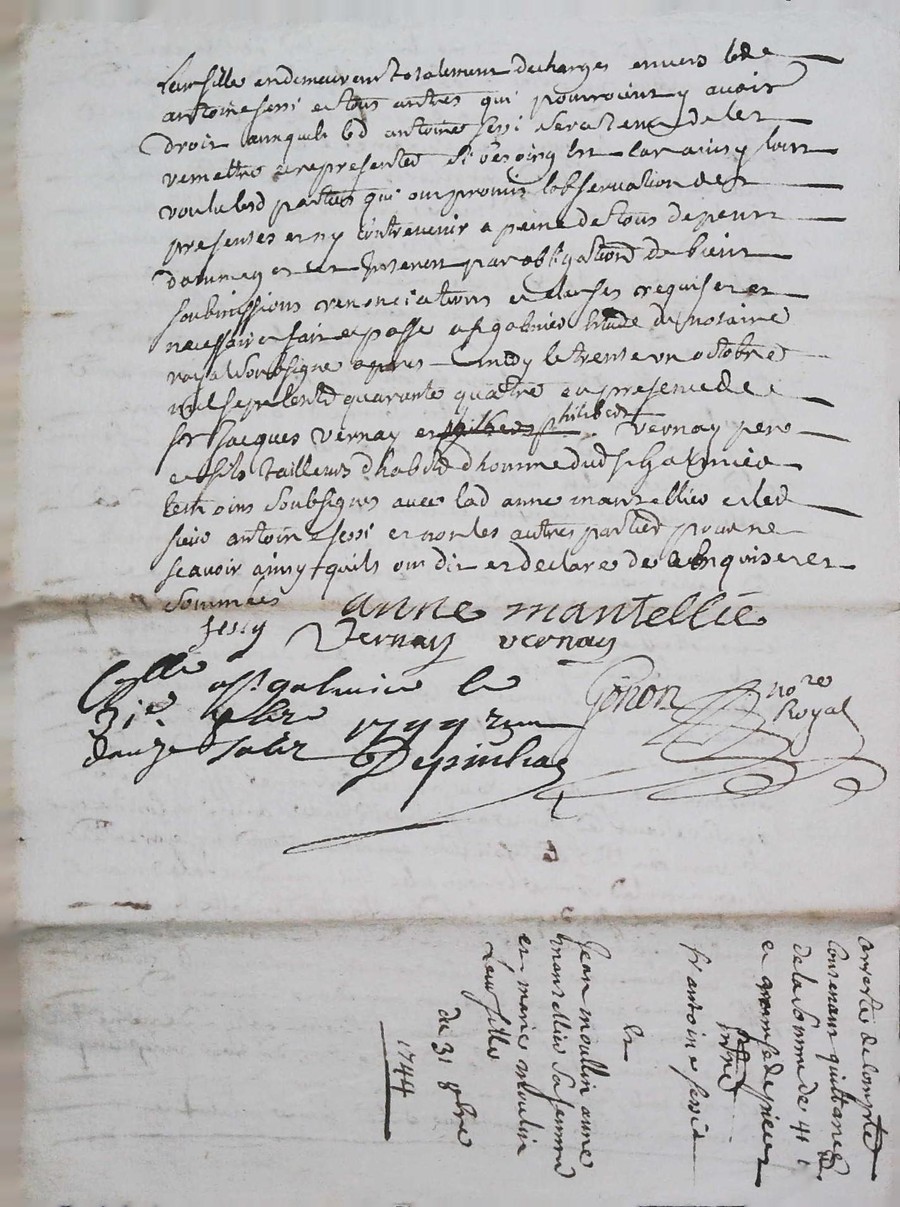 leur fille en demeurent totalement decharges envers led
antoine sessi et tous autres qui pourroient y avoir
droit auxquels led antoine sessi sera tenu de les
remettre et representer si besoing est car ainsy l'ont
voulu lesd parties qui ont promis lobservation des
presentes et ny contrevenir a peine de tous depens
dommages et interest par obligations de biens
soubmissions renonciations et clauses requises et
necessaires fait et passé a st galmier étude du notaire
royal soubsigné apres midy le trente un octobre
mil sept cent quarante quatre en presence de
sr Jacques vernay et philibert vernay pere
et fils tailleurs dhabits dhomme dud st galmier
temoins soubsignés avec lad anne mantellier et led
sieur antoine sessi et non les autres parties pour ne
scavoir ainsy quils ont dit et declaré de ce enquis et
sommés
anne mantellie
sessy Vernay vernay
Gonon nore Royal
Collé a st galmier le
31e 8bre 1744 reçu
douze sols
arresté de compte
contenant quittance
de la somme de 41 l
et remise de pieces
entre
sr antoine sessi
et
Jean moullin anne
mantellier sa femme
et marie moulin
Leur fille
du 31 8bre
1744